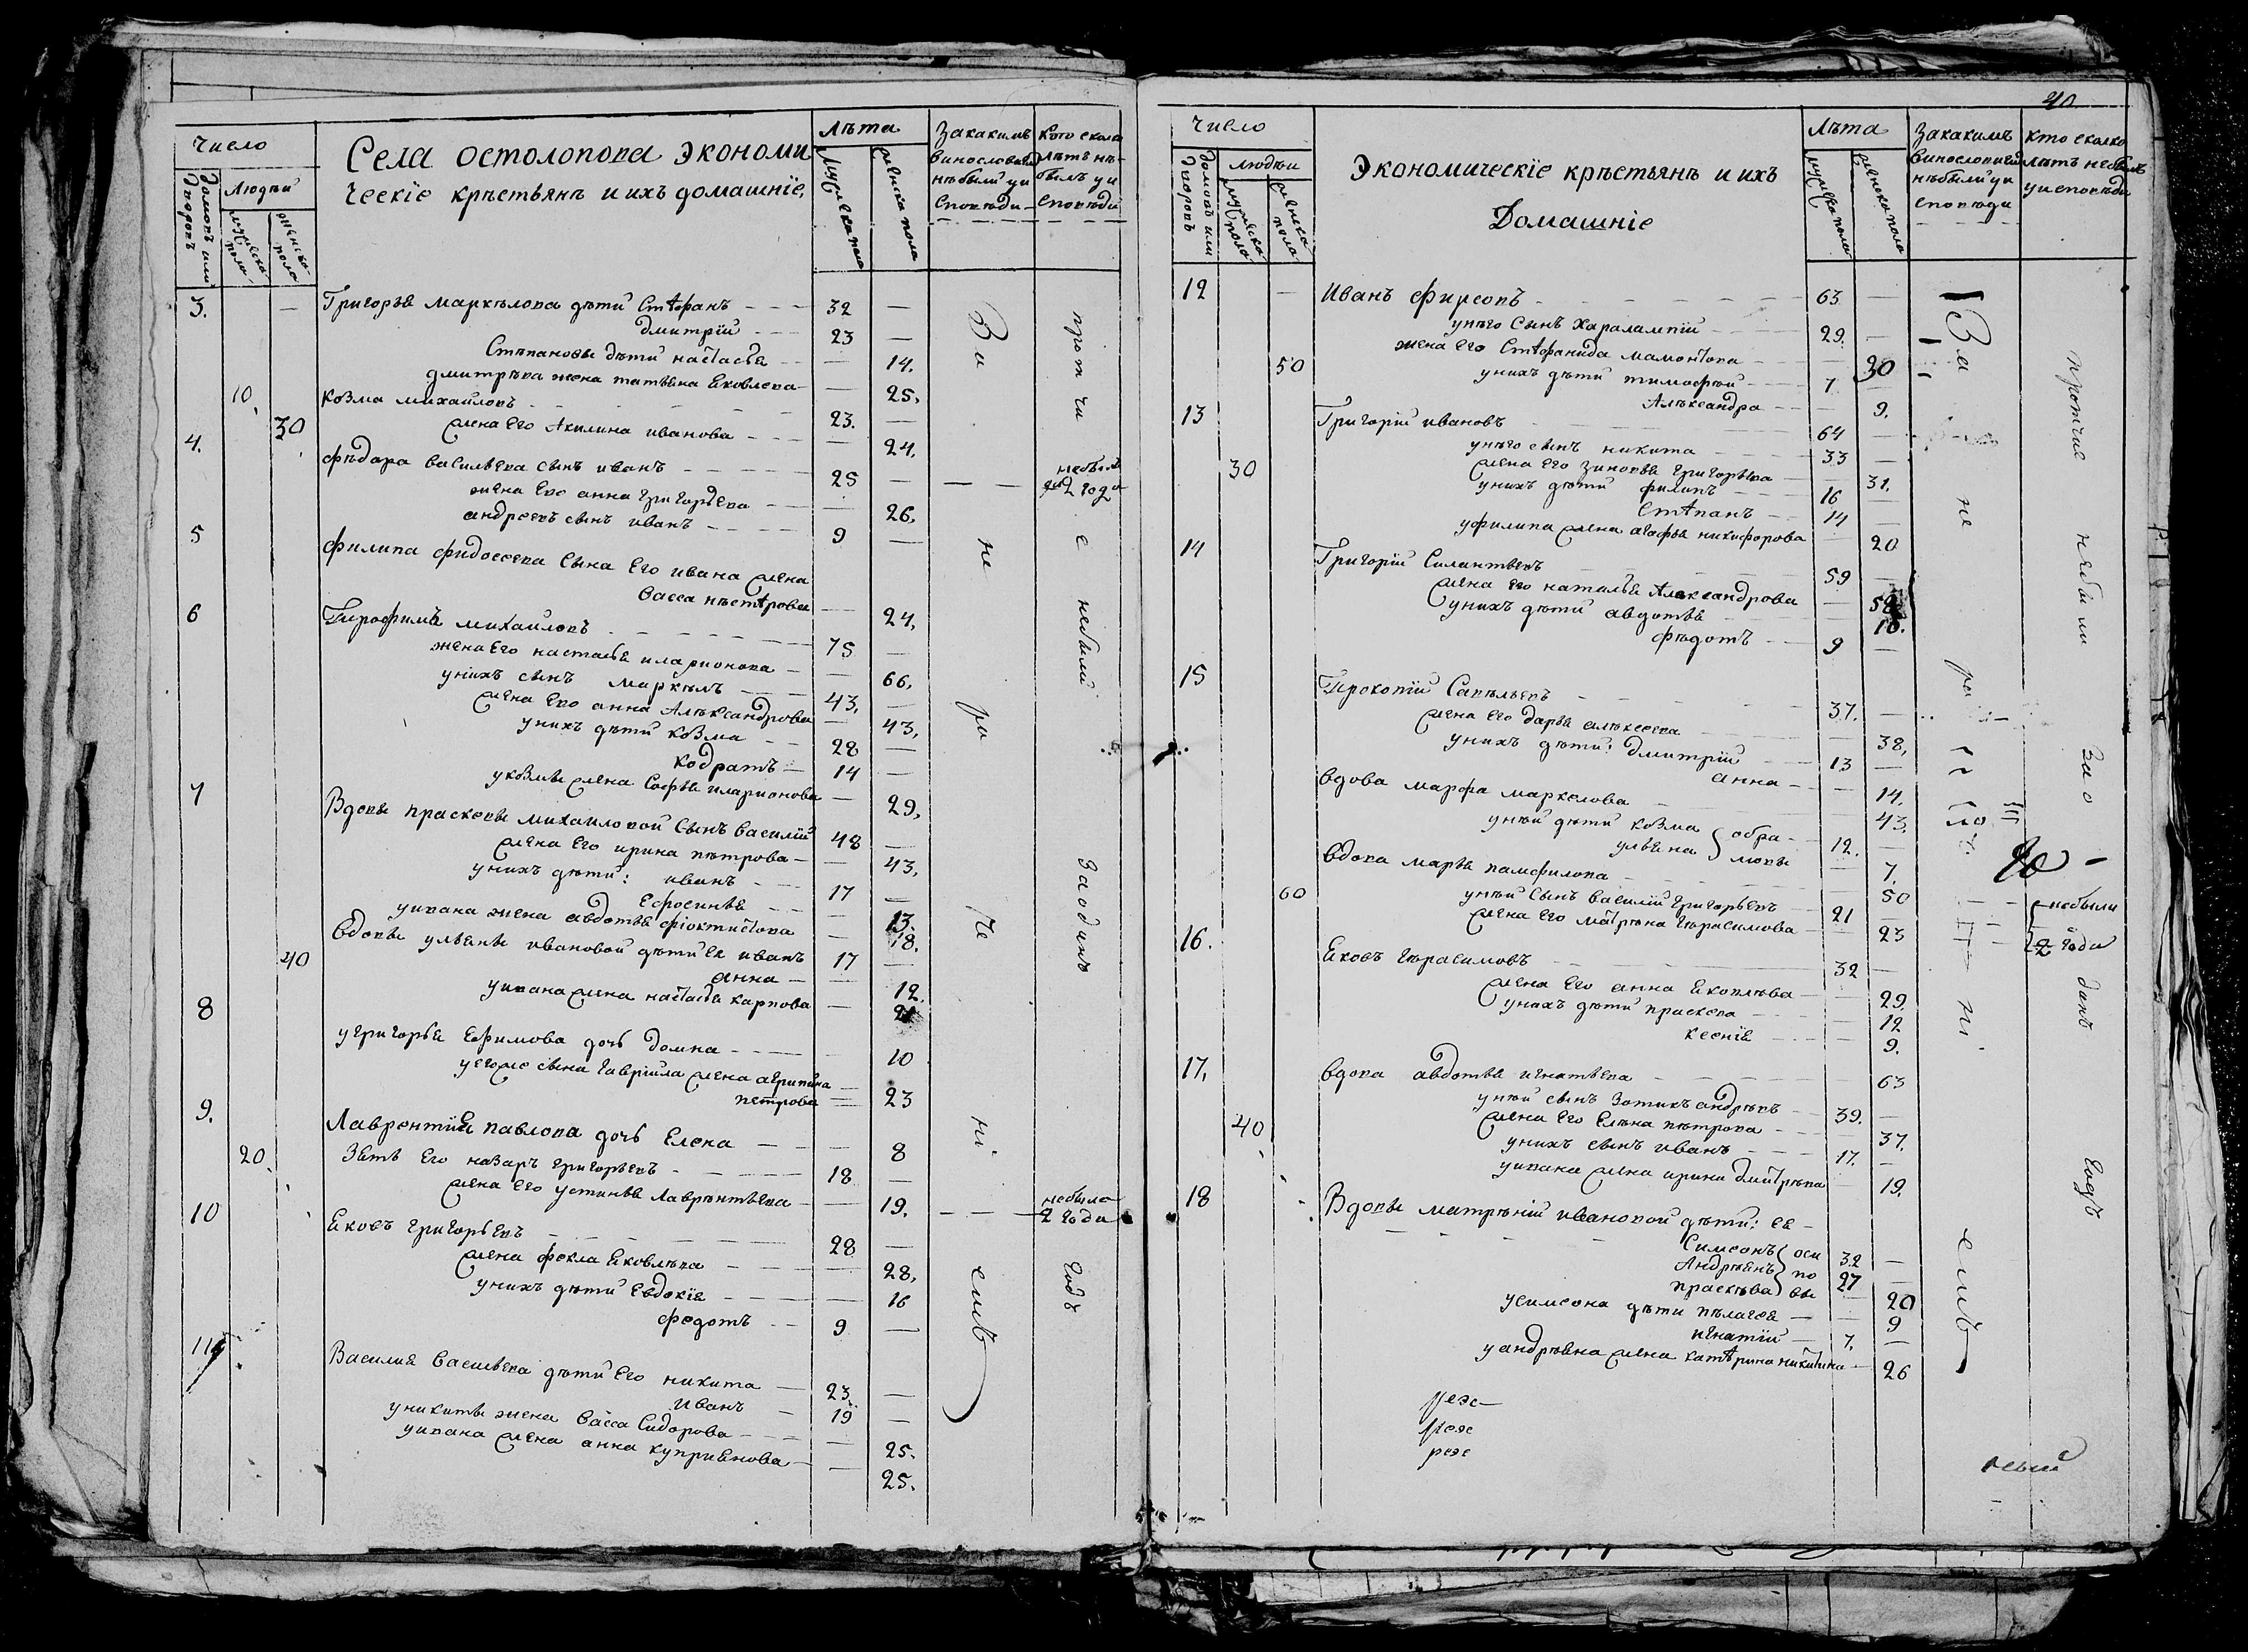 Число
Людѣй
Домовъ или
Дворовъ
мужеска
пола
женска
пола
Села остолопова экономи
ческіе крѣстьянъ и ихъ домашніе,
Лѣта
Мужеска пола
женска пола
За какимъ
винословіемъ
нѣбыли уи
споведи
Кто сколко
лѣтъ нѣ-
былъ уи
споведи
3.
Григорья маркѣлова дѣти Стѣфанъ 32 —
дмитріи 23 —
Стѣпановы дѣти настасья — 14.
дмитрѣва жена татьяна Яковлева — 25.
10.
Козма михаиловъ 23. —
30
жена Его Акилина иванова — 24.
4.
фѣдора васильева сынъ иванъ 25 — — — небылъ
2 года
жена Его анна григорьева — 26.
андреевъ сынъ иванъ 9 —
5
филипа фидосеева Сына Его ивана жена
васса нѣстѣрова — 24.
6
Трофимъ михаиловъ 75 —
жена Его настасья иларионова — 66.
унихъ сынъ маркѣлъ 43. —
жена Его анна Алѣксандрова — 43.
унихъ дѣти козма 28 —
кодратъ 14 —
укозмы жена Софья иларионова — 29.
7
Вдовы прасковьи михаиловой Сынъ василіи 48 —
жена Его ирина пѣтрова — 43.
унихъ дѣти: иванъ 17 —
Ефросинья — 13.
уивана жена авдотья фіоктистова — 18.
вдовы ульяны ивановой дѣти Ея иванъ 17 —
40
анна — 12.
уивана жена настасья карпова — 21
8
угригорья Ефимова дочь домна — 10
уегоже сына гавріила жена агрипина
петрова — 23
9.
Лаврентия павлова дочь Елена — 8
20.
Зять Его назаръ григорьевъ 18 —
жена Его устинья Лаврентьева — 19. — — небыла
2 года
10
Яковъ григорьевъ 28 —
жена фекла Яковлѣва — 28,
унихъ дѣти Евдокія — 16
федотъ 9 —
11
Василия васильева дѣти Его никита 23. —
иванъ 19 —
уникиты жена васса Сидорова — 25.
уивана жена анна куприянова — 25.
За не ра че ні емъ
протчи е небыли заодинъ годъ
40
Число
Домовъ или
Дворовъ
людѣи
мужеска
пола
женска
пола
Экономическіе крѣстьянъ и ихъ
Домашніе
Лѣта
мужеска пола
женска пола
За какимъ
винословіемъ
нѣбыли уи
споведи
кто сколко
лѣтъ небылъ
уисповѣди
12
Иванъ фирсовъ 63 —
унѣго Сынъ харалампіи 29. —
жена Его Стѣфанида мамонтова — 30
50
унихъ дѣти тимофѣи 7 —
Алѣксандра — 9.
13
Григоріи ивановъ 64 —
унѣго сынъ никита 33 —
30
жена Его зиновья григорьева — 31.
унихъ дѣти филипъ 16 —
Стѣпанъ 14 —
уфилипа жена агафья никифорова — 20
14
Григоріи Силантьевъ 59 —
жена Его наталья Александрова — 58
унихъ дѣти авдотья — 16.
фѣдотъ 9 —
15
Прокопіи Савѣльевъ 37. —
жена Его дарья алѣксеева — 38,
унихъ дѣти: дмитріи 13 —
анна — 14.
вдова марфа маркелова — 43.
унѣи дѣти козма 12. —
ульяна — 7.
вдова марья памфилова — 50
60
унѣи Сынъ василіи григорьевъ 21 —
жена Его матрѣна гѣрасимова — 23
небыли
2 года
16.
Яковъ гѣрасимовъ 32 —
жена Его анна Яковлѣва — 29.
унихъ дѣти праскева — 12
ксенія — 9.
17,
вдова авдотья игнатьева — 63
унѣи сынъ зотикъ андрѣевъ 39. —
40.
жена Его Елѣна пѣтрова — 37.
унихъ сынъ иванъ 17. —
уивана жена ирина дмитрѣва — 19.
18
Вдовы матрѣніи ивановой дѣти: Ея
Симеонъ 32 —
Андрѣянъ 27 —
праскѣва — 20
усимеона дѣти пѣлагея — 9
игнатіи 7. —
уандрѣяна жена катѣрина никитина — 26
За не ра че ні емъ
протчия небыли заодинъ годъ